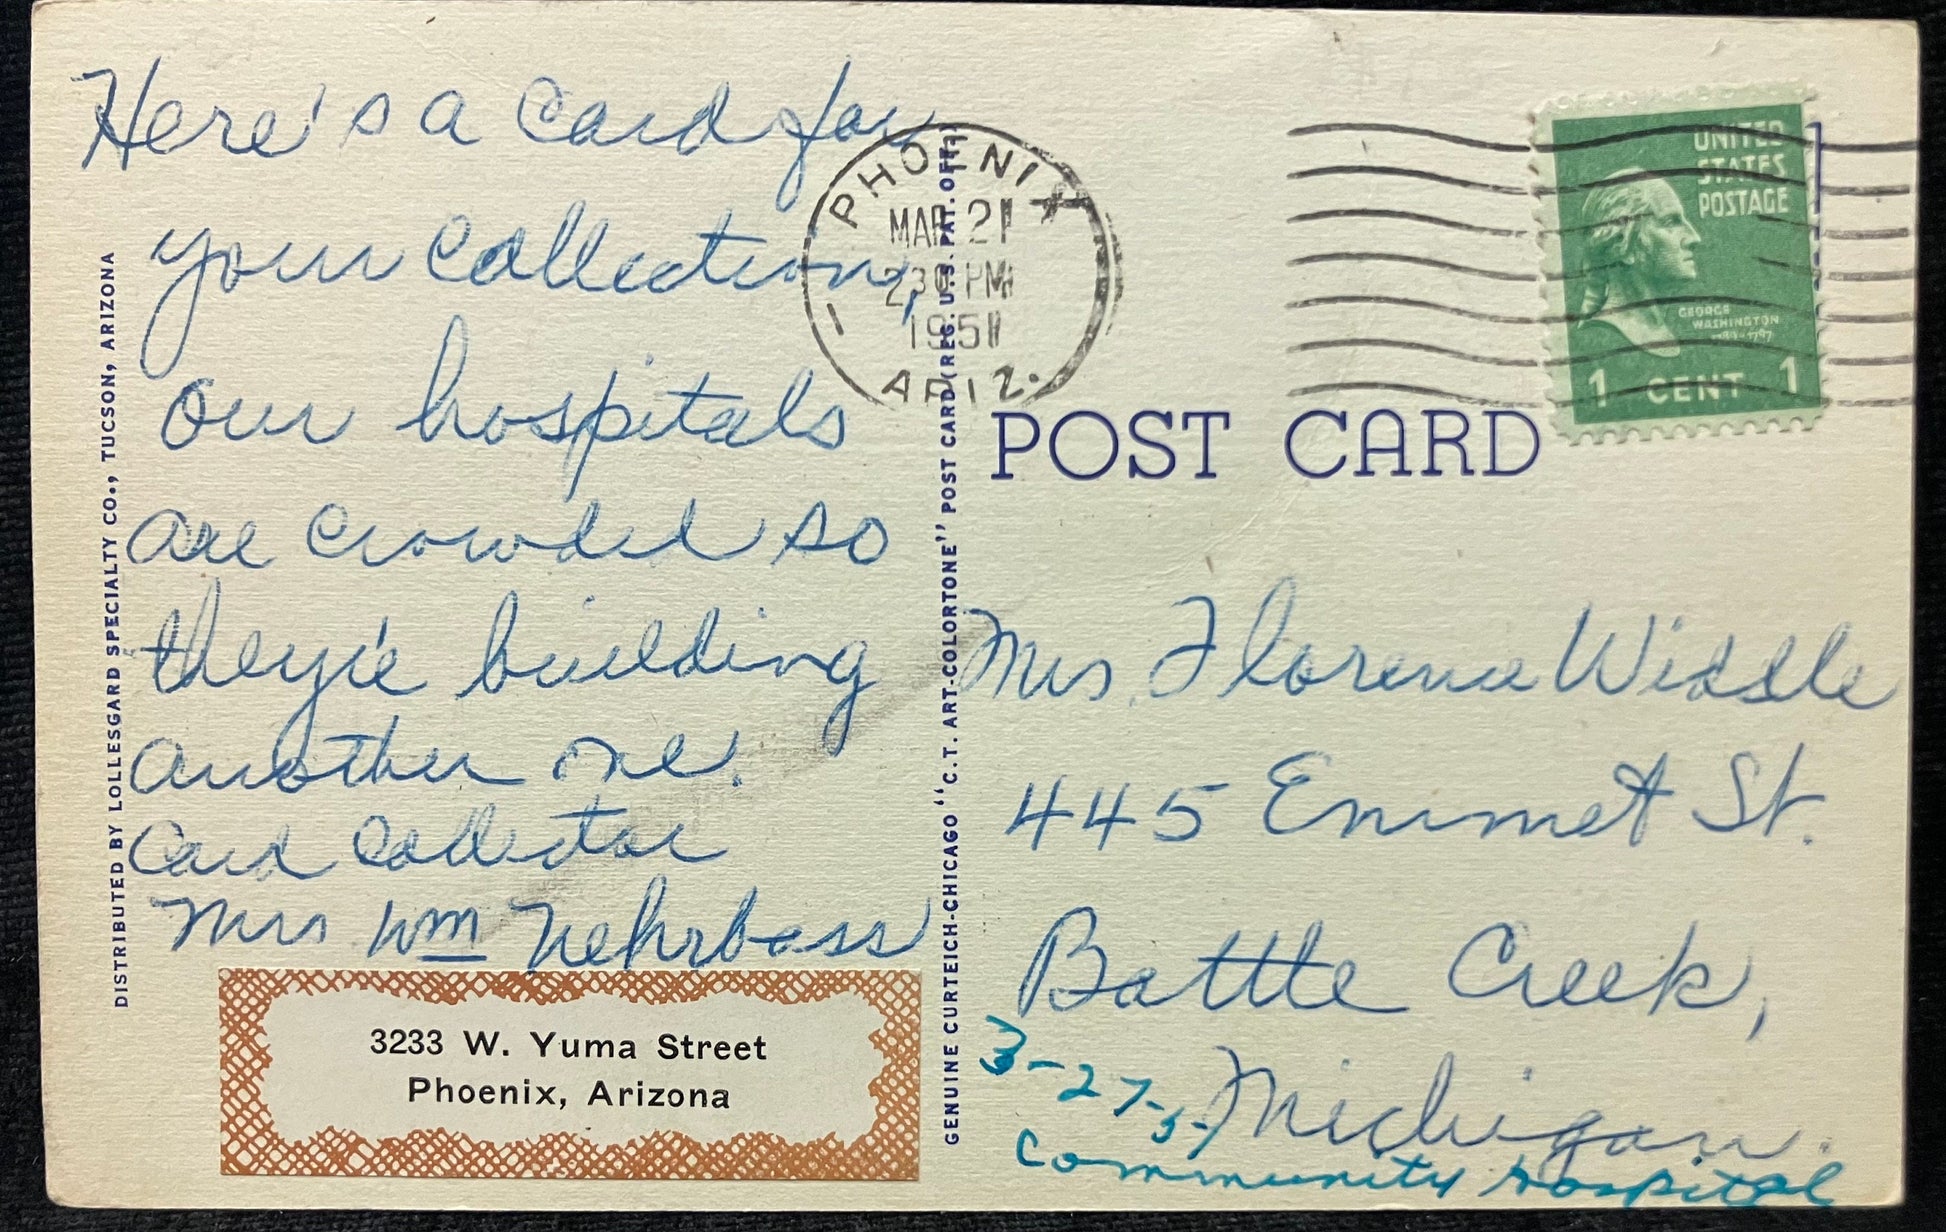 Here's a card for
your collection,
Our hospitals
are crowded so
they're building
another one.
Card Collector
Mrs Wm Nehrbass
3233 W. Yuma Street
Phoenix, Arizona
DISTRIBUTED BY LOLLESGARD SPECIALTY CO., TUCSON, ARIZONA
GENUINE CURTEICH-CHICAGO "C.T. ART-COLORTONE" POST CARD (REG. U.S. PAT. OFF.)
PHOENIX
MAR 21
230 PM
1951
ARIZ.
1
UNITED
STATES
POSTAGE
GEORGE
WASHINGTON
1789-1797
1 CENT 1
POST CARD
Mrs. Florence Widdle
445 Emmet St.
Battle Creek,
Michigan.
3-27-51
Community Hospital